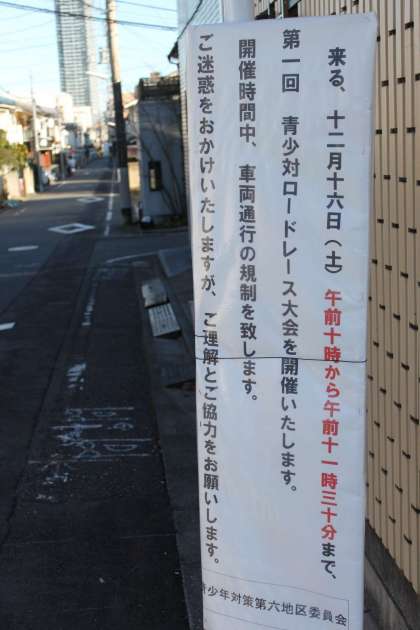 来る、十二月十六日（土）午前十時から午前十一時三十分まで、
第一回　青少対ロードレース大会を開催いたします。
開催時間中、車両通行の規制を致します。
ご迷惑をおかけいたしますが、ご理解とご協力をお願いします。
青少年対策第六地区委員会